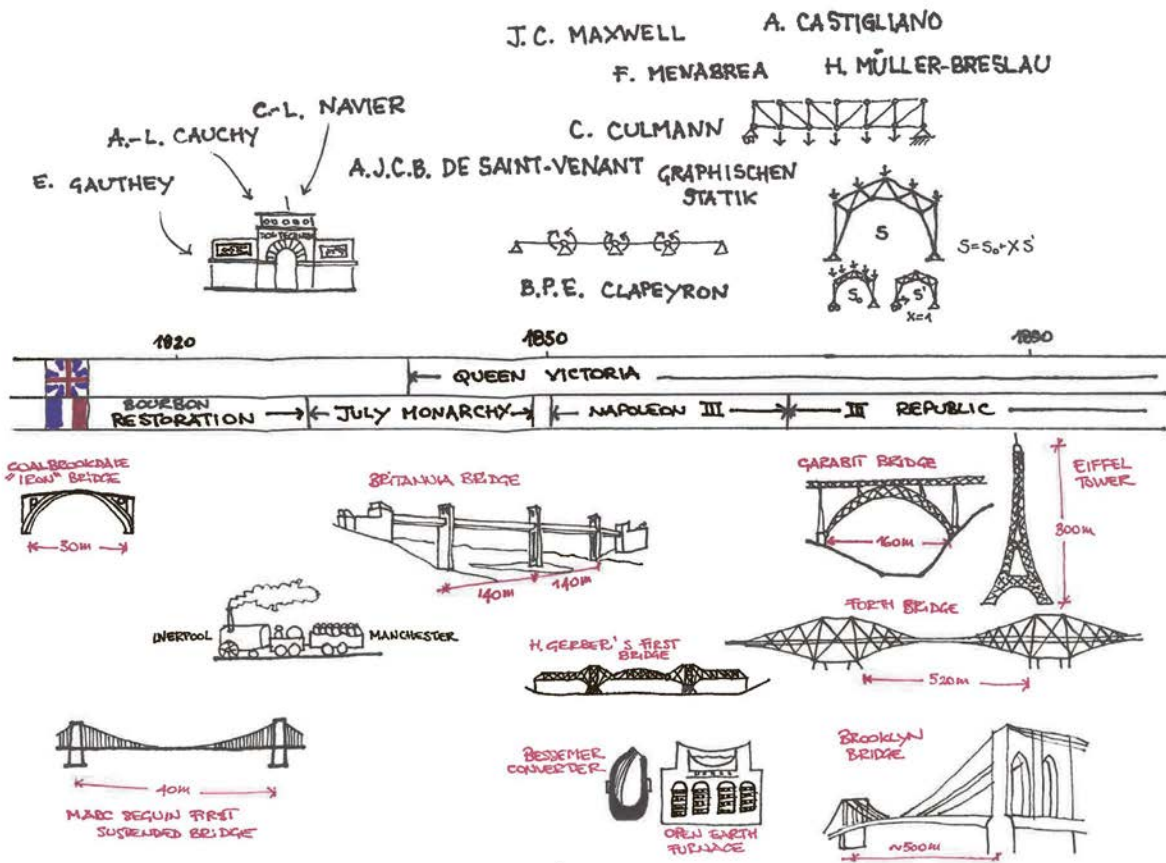 J.C. MAXWELL
A. CASTIGLIANO
F. MENABREA
H. MÜLLER-BRESLAU
C.-L. NAVIER
A.-L. CAUCHY
C. CULMANN
E. GAUTHEY
A.J.C.B. DE SAINT-VENANT
GRAPHISCHEN
STATIK
S
S=S₀+XS'
B.P.E. CLAPEYRON
S₀
S'
X=1
1820
1850
1890
QUEEN VICTORIA
BOURBON
RESTORATION
JULY MONARCHY
NAPOLEON III
III REPUBLIC
COALBROOKDALE
"IRON" BRIDGE
30m
BRITANNIA BRIDGE
140m
140m
GARABIT BRIDGE
160m
EIFFEL
TOWER
300m
LIVERPOOL
MANCHESTER
H. GERBER'S FIRST
BRIDGE
FORTH BRIDGE
520m
40m
MARC SEGUIN FIRST
SUSPENDED BRIDGE
BESSEMER
CONVERTER
OPEN EARTH
FURNACE
BROOKLYN
BRIDGE
~500m